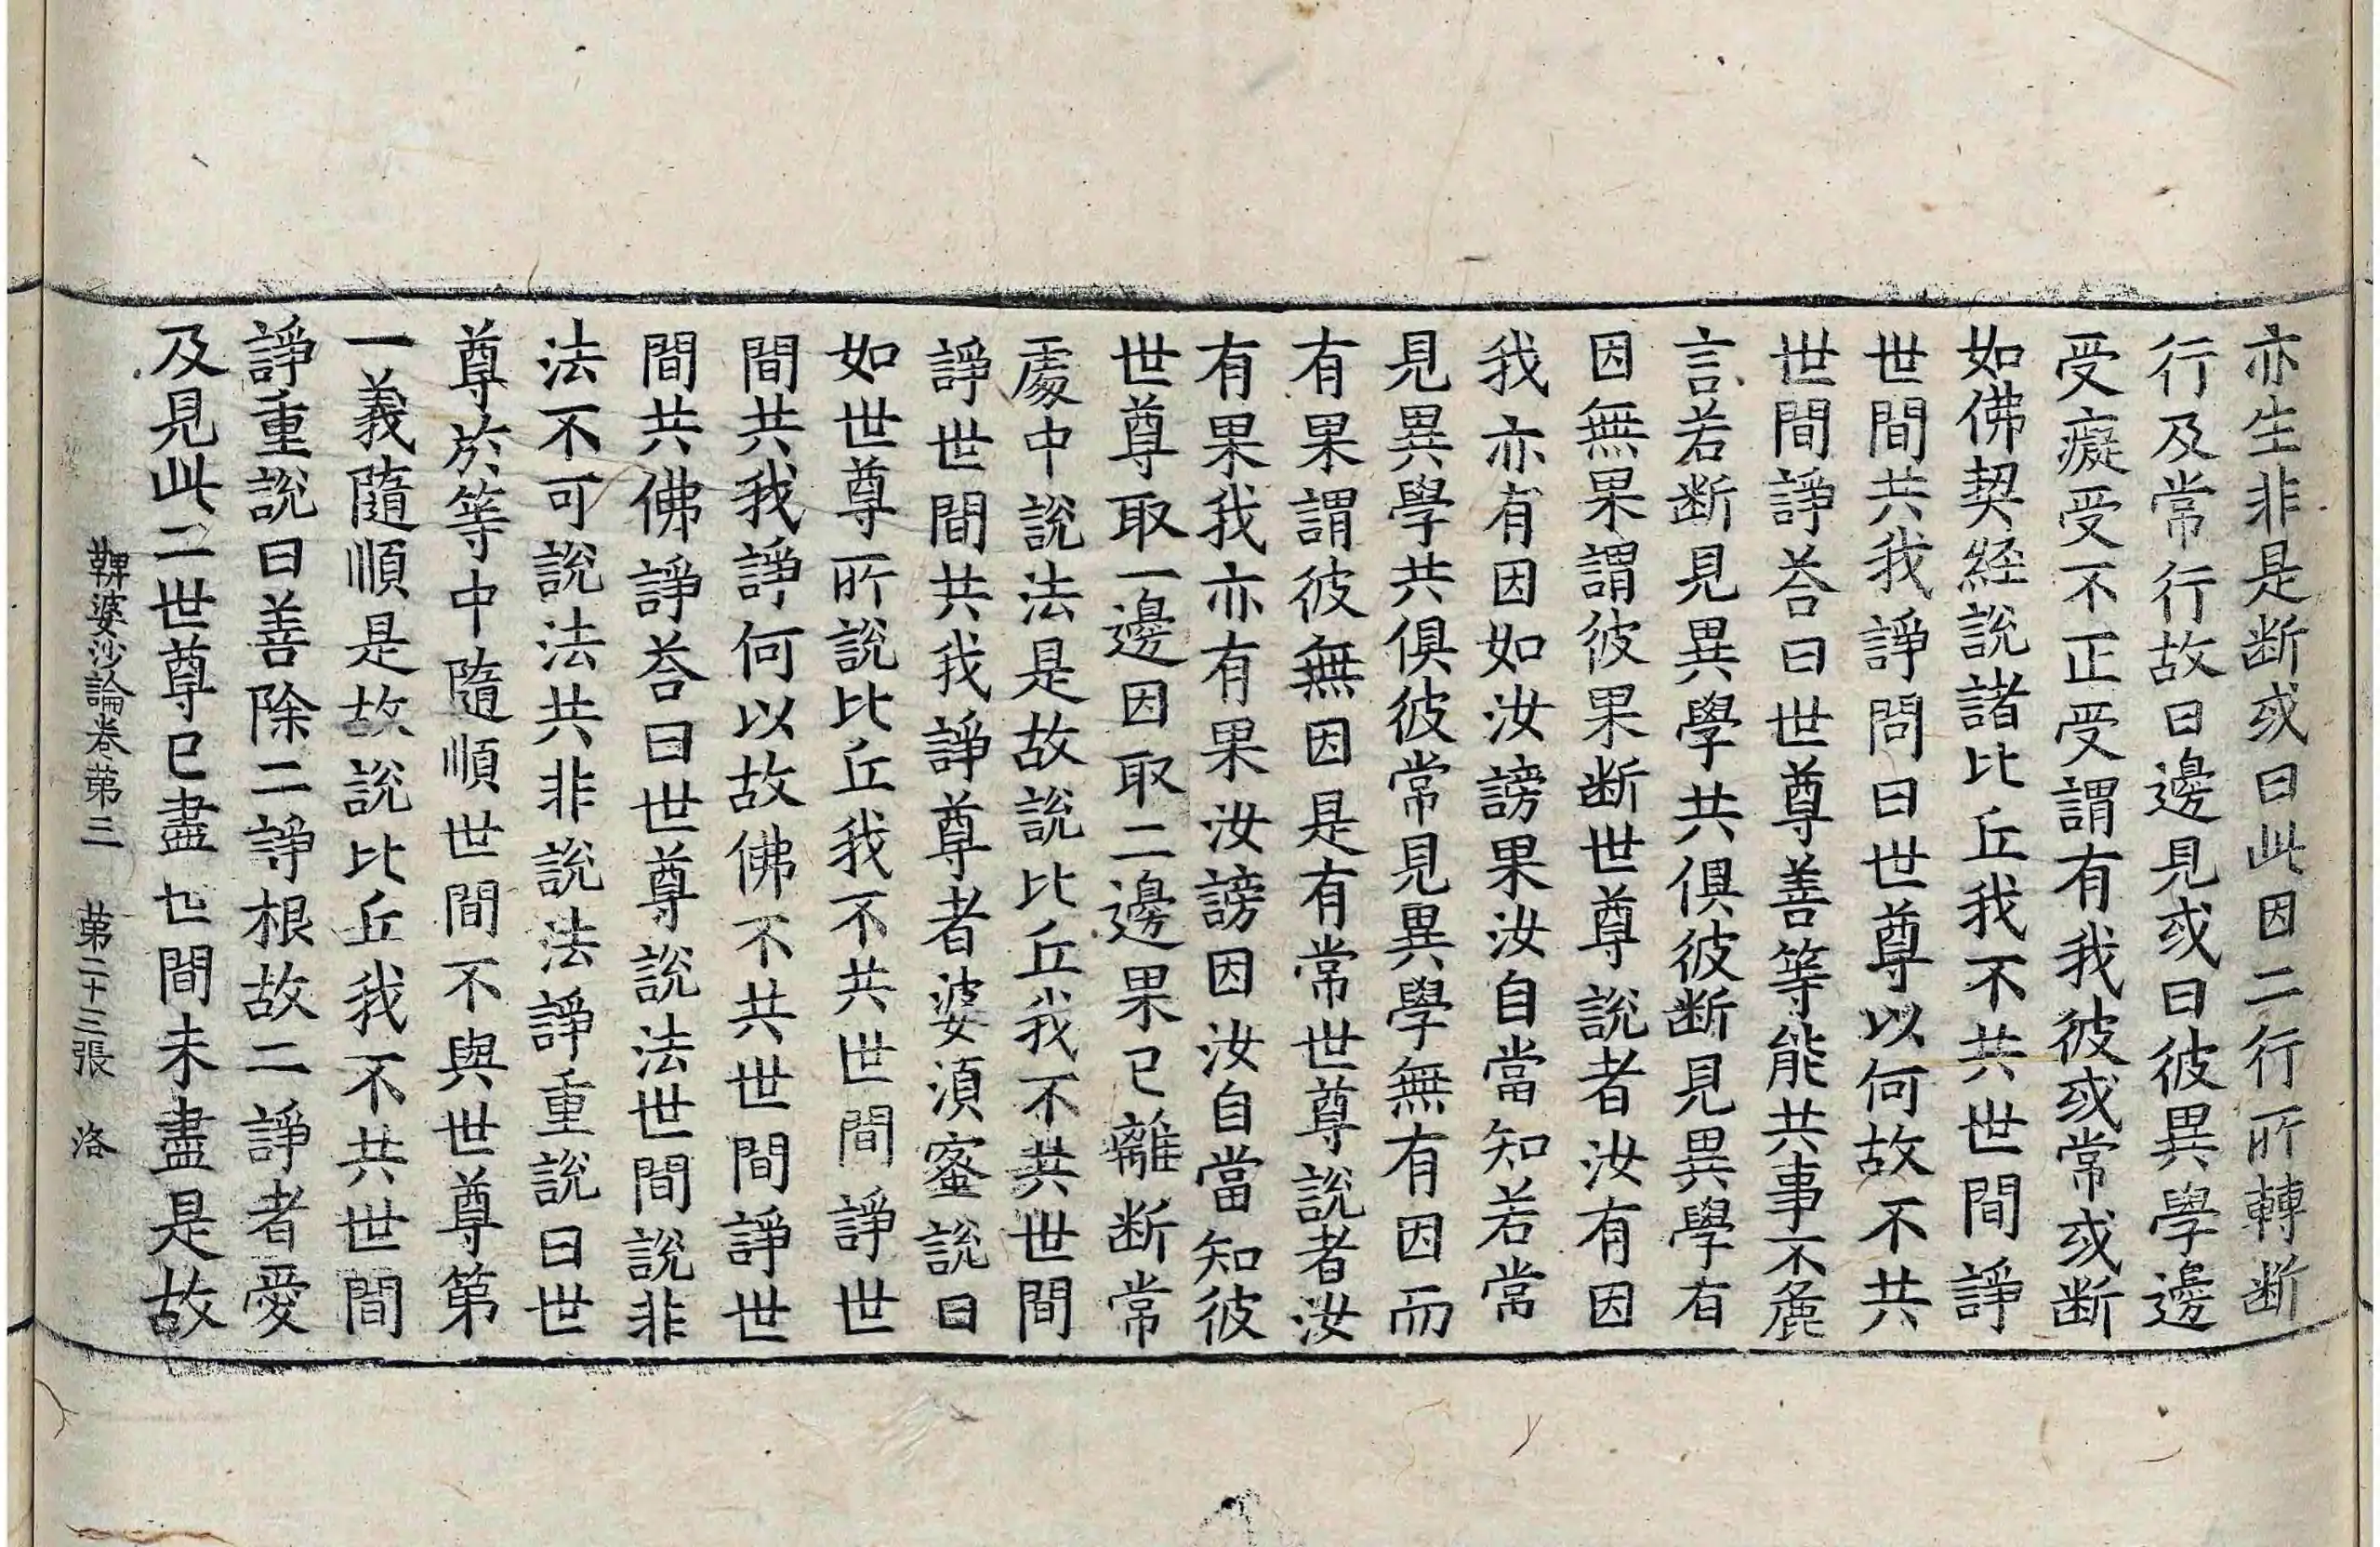 亦生非是断或曰此因二行所轉断
行及常行故曰邊見或曰彼異學邊
受癡受不正受謂有我彼或常或断
如佛契経說諸比丘我不共世間諍
世間共我諍問曰世尊以何故不共
世間諍荅曰世尊善等能共事不麁
言若断見異學共俱彼断見異學有
因無果謂彼果断世尊說者汝有因
我亦有因如汝謗果汝自當知若常
見異學共俱彼常見異學無有因而
有果謂彼無因是有常世尊說者汝
有果我亦有果汝謗因汝自當知彼
世尊取一邊因取二邊果已離断常
處中說法是故說比丘我不共世間
諍世間共我諍尊者婆湏蜜說曰
如世尊所說比丘我不共世間諍世
間共我諍何以故佛不共世間諍世
間共佛諍荅曰世尊說法世間說非
法不可說法共非說法諍重說曰世
尊於等中隨順世間不與世尊第
一義隨順是故說比丘我不共世間
諍重說曰善除二諍根故二諍者愛
及見此二世尊已盡世間未盡是故
鞞婆沙論卷第三　第二十三張　洛